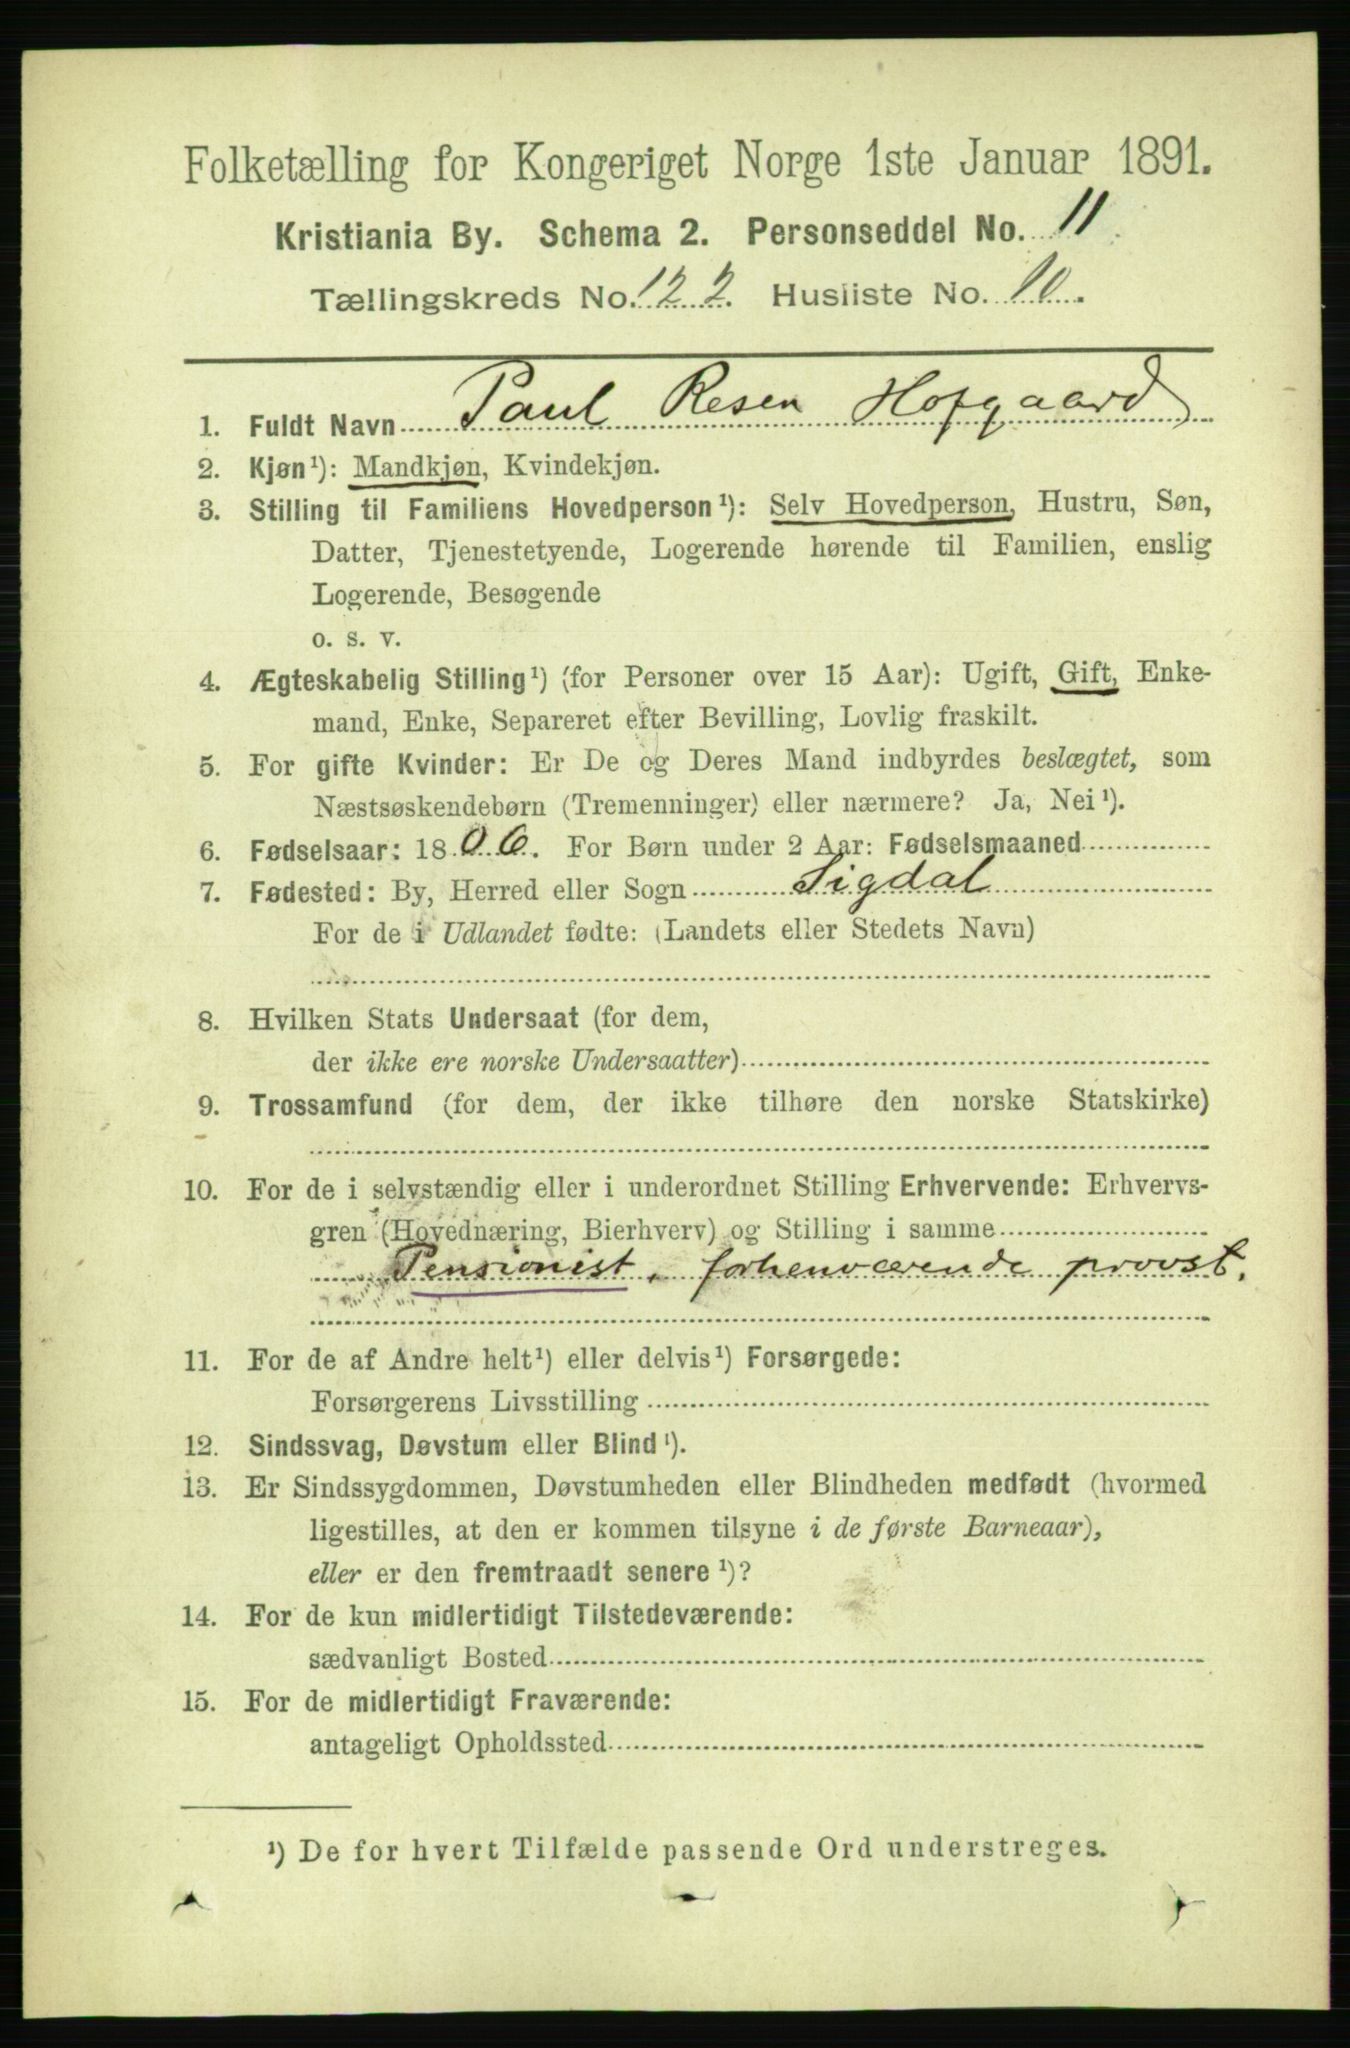 Folketælling for Kongeriget Norge 1ste Januar 1891.
Kristiania By. Schema 2. Personseddel No. 11.
Tællingskreds No. 122 Husliste No. 10.
1. Fuldt Navn Paul Resen Hofgaard
2. Kjøn¹): Mandkjøn, Kvindekjøn.
3. Stilling til Familiens Hovedperson¹): Selv Hovedperson, Hustru, Søn,
Datter, Tjenestetyende, Logerende hørende til Familien, enslig
Logerende, Besøgende
o. s. v.
4. Ægteskabelig Stilling¹) (for Personer over 15 Aar): Ugift, Gift, Enke-
mand, Enke, Separeret efter Bevilling, Lovlig fraskilt.
5. For gifte Kvinder: Er De og Deres Mand indbyrdes beslægtet, som
Næstsøskendebørn (Tremenninger) eller nærmere? Ja, Nei¹).
6. Fødselsaar: 1806. For Børn under 2 Aar: Fødselsmaaned
7. Fødested: By, Herred eller Sogn Sigdal
For de i Udlandet fødte: (Landets eller Stedets Navn)
8. Hvilken Stats Undersaat (for dem,
der ikke ere norske Undersaatter)
9. Trossamfund (for dem, der ikke tilhøre den norske Statskirke)
10. For de i selvstændig eller i underordnet Stilling Erhvervende: Erhvervs-
gren (Hovednæring, Bierhverv) og Stilling i samme
Pensionist, forhenværende provst.
11. For de af Andre helt¹) eller delvis¹) Forsørgede:
Forsørgerens Livsstilling
12. Sindssvag, Døvstum eller Blind¹).
13. Er Sindssygdommen, Døvstumheden eller Blindheden medfødt (hvormed
ligestilles, at den er kommen tilsyne i de første Barneaar),
eller er den fremtraadt senere¹)?
14. For de kun midlertidigt Tilstedeværende:
sædvanligt Bosted
15. For de midlertidigt Fraværende:
antageligt Opholdssted
¹) De for hvert Tilfælde passende Ord understreges.